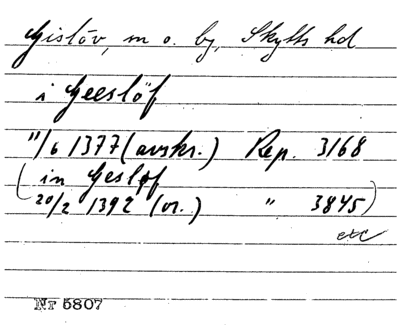 Gislöv, m o. by, Skytts hd
i Geeslöf
11/6 1377 (avskr.) Rep. 3168
(in Gesløf
20/2 1392 (or.) " 3845)
etc
Nr 5807